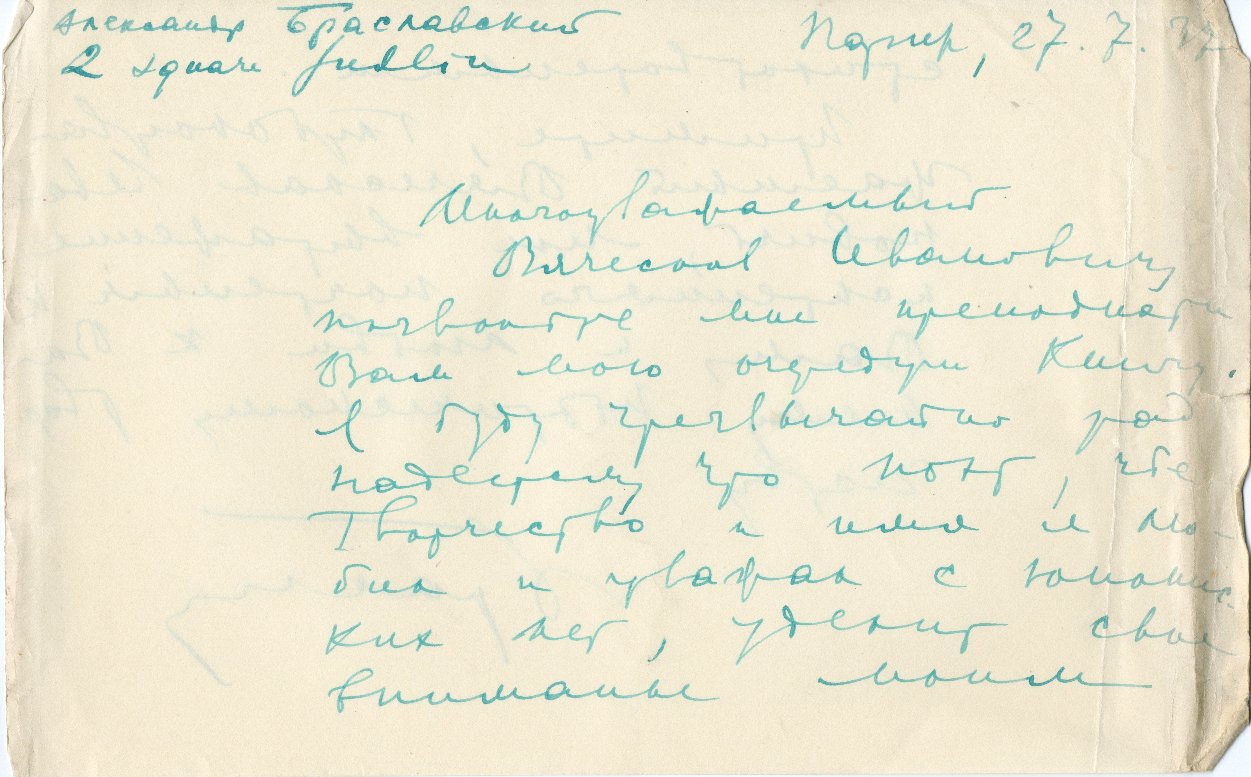 Александр Браславский
2 square
Париж, 27. 7. 37
Многоуважаемый
Вячеслав Иванович,
позвольте мне преподнести
Вам мою книгу.
Я буду чрезвычайно рад
что поэт, чье
Творчество и имя я лю-
блю и уважаю с юношес-
ких лет, уделит свое
вниманье моим